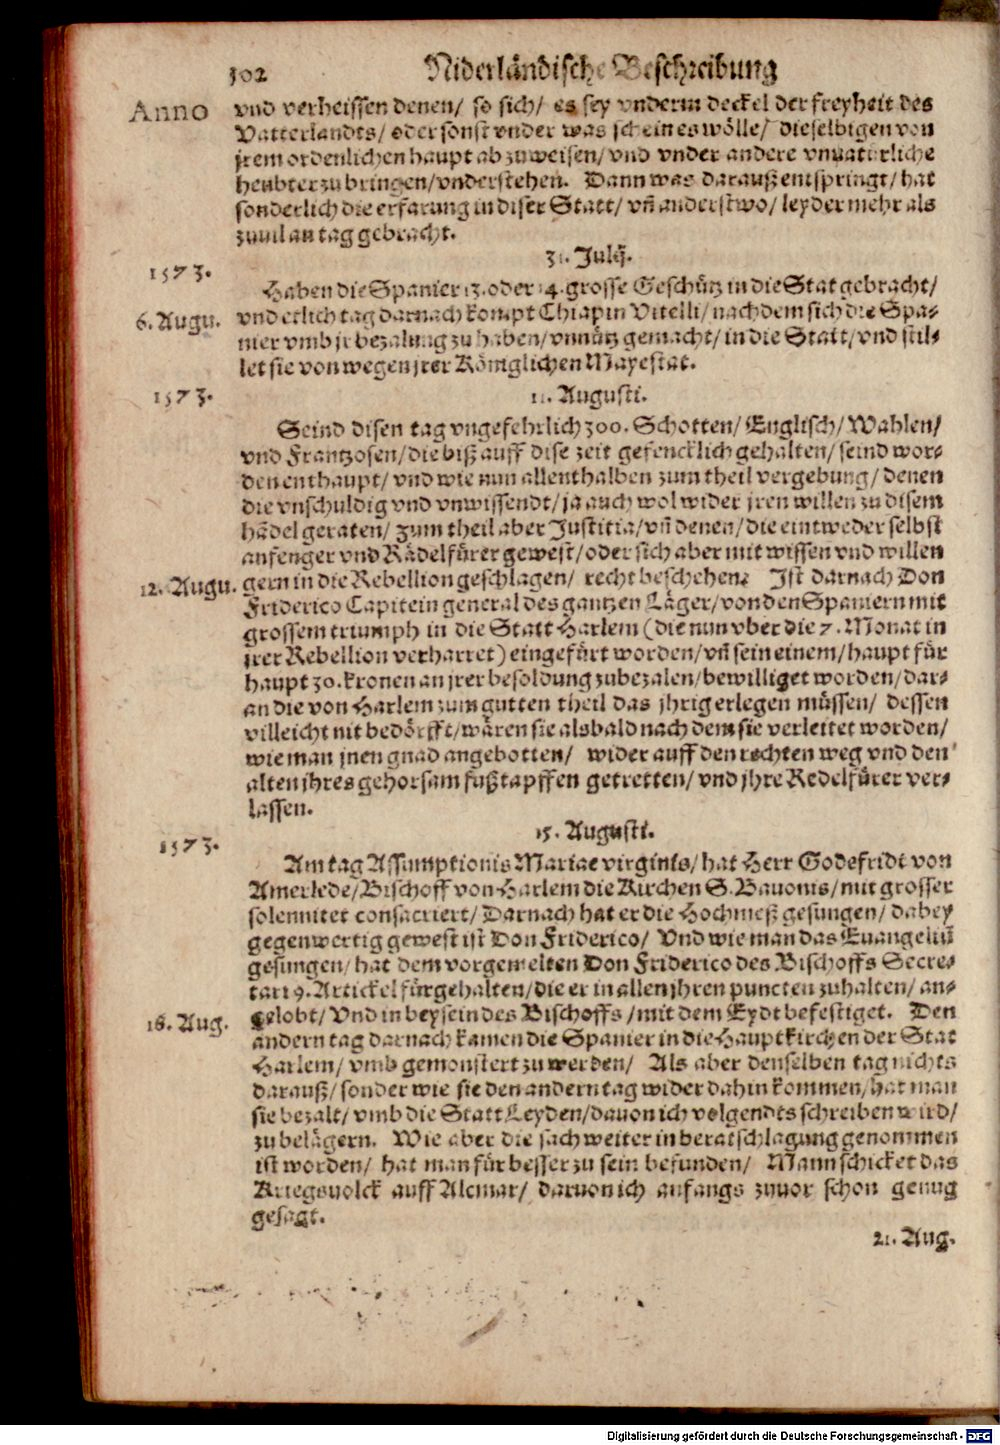 302 Niderländische Beschreibung
Anno vnd verheissen denen/ so sich/ es sey vnderm deckel der freyheit des
Vatterlandts/ oder sonst vnder was schein es wölle/ dieselbigen von
jrem ordenlichen haupt abzuweisen/ vnd vnder andere vnnatürliche
heubter zu bringen/ vnderstehen. Dann was darauß entspringt/ hat
sonderlich die erfarung in diser Statt/ vñ anderstwo/ leyder mehr als
zuuil an tag gebracht.
31. Julij.
1573.
Haben die Spanier 13. oder 14. grosse Geschütz in die Stat gebracht/
6. Augu. vnd etlich tag darnach kompt Chiapin Vitelli/ nach dem sich die Spa-
nier vmb jr bezalung zu haben/ vnnütz gemacht/ in die Statt/ vnd stil-
let sie von wegen jrer Königlichen Mayestat.
1573. 11. Augusti.
Seind disen tag vngefehrlich 300. Schotten/ Englisch/ Wahlen/
vnd Frantzosen/ die biß auff dise zeit gefencklich gehalten/ seind wor-
den enthaupt/ vnd wie nun allenthalben zum theil vergebung/ denen
die vnschuldig vnd vnwissendt/ ja auch wol wider jren willen zu disem
hãdel geraten/ zum theil aber Justitia/ vñ denen/ die eintweder selbst
anfenger vnd Rädelfürer gewest/ oder sich aber mit wissen vnd willen
12. Augu. gern in die Rebellion geschlagen/ recht beschehen. Ist darnach Don
Friderico Capitein general des gantzen Läger/ von den Spaniern mit
grossem triumph in die Statt Harlem (die nun vber die 7. Monat in
jrer Rebellion verharret) eingefürt worden/ vñ sein einem/ haupt für
haupt 30. kronen an jrer besoldung zubezalen/ bewilliget worden/ dar-
an die von Harlem zum gutten theil das jhrig erlegen müssen/ dessen
villeicht nit bedörfft/ wären sie alsbald nach dem sie verleitet worden/
wie man jnen gnad angebotten/ wider auff den rechten weg vnd den
alten jhres gehorsam fußtapffen getretten/ vnd jhre Redelfürer ver-
lassen.
15. Augusti.
1573.
Am tag Assumptionis Mariae virginis/ hat Herr Godefridt von
Amerlede/ Bischoff von Harlem die Kirchen S. Bauonis/ mit grosser
solennitet consacriert/ Darnach hat er die Hochmeß gesungen/ dabey
gegenwertig gewest ist Don Friderico/ Vnd wie man das Euangeliũ
gesungen/ hat dem vorgemelten Don Friderico des Bischoffs Secre-
tari 9. Artickel fürgehalten/ die er in allen jhren puncten zuhalten/ an-
gelobt/ Vnd in beysein des Bischoffs/ mit dem Eydt befestiget. Den
16. Aug. andern tag darnach kamen die Spanier in die Hauptkirchen der Stat
Harlem/ vmb gemonstert zu werden/ Als aber denselben tag nichts
darauß/ sonder wie sie den andern tag wider dahin kommen/ hat man
sie bezalt/ vmb die Statt Leyden/ dauon ich volgendts schreiben wird/
zu belägern. Wie aber die sach weiter in beratschlagung genommen
ist worden/ hat man für besser zu sein befunden/ Mann schicket das
Kriegsuolck auff Alcmar/ daruon ich anfangs zuuor schon genug
gesagt.
21. Aug.
Digitalisierung gefördert durch die Deutsche Forschungsgemeinschaft - DFG